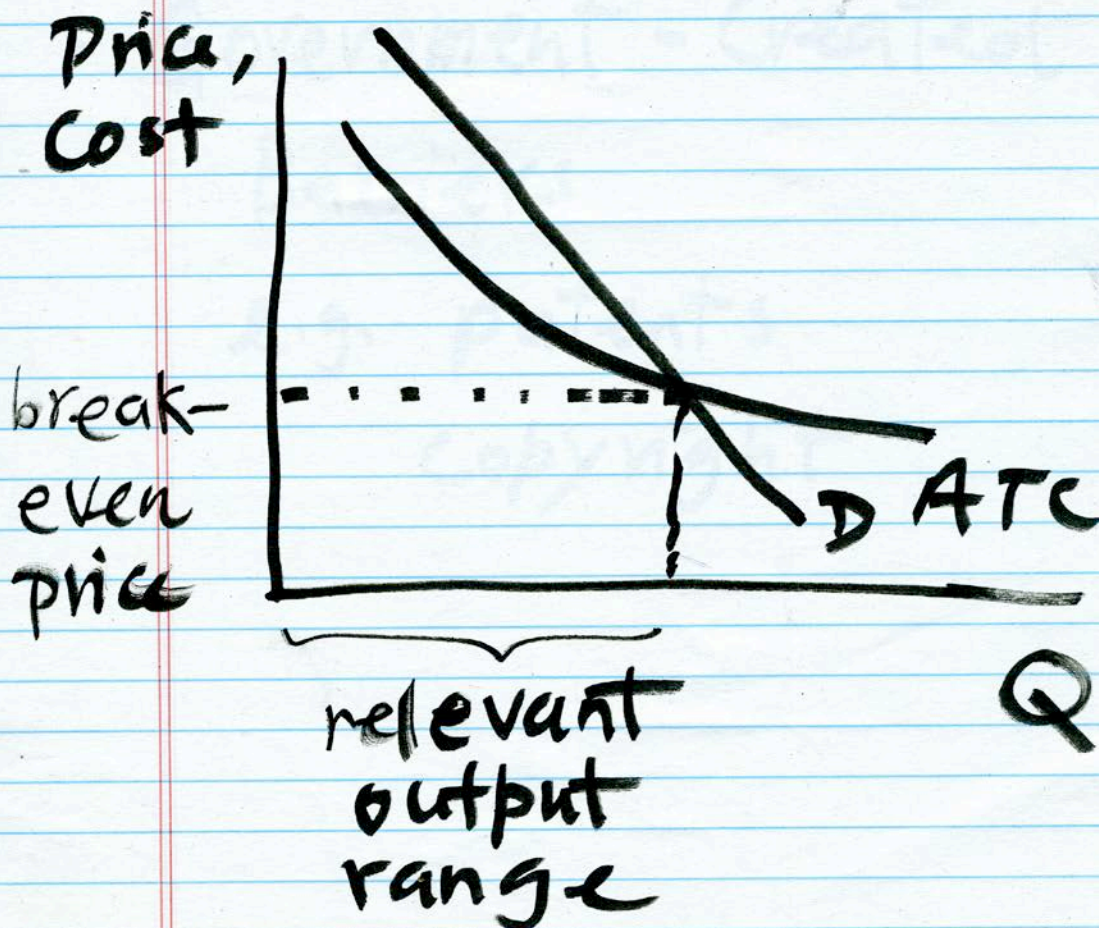 Price,
Cost
break-
even
price
D ATC
Q
relevant
output
range